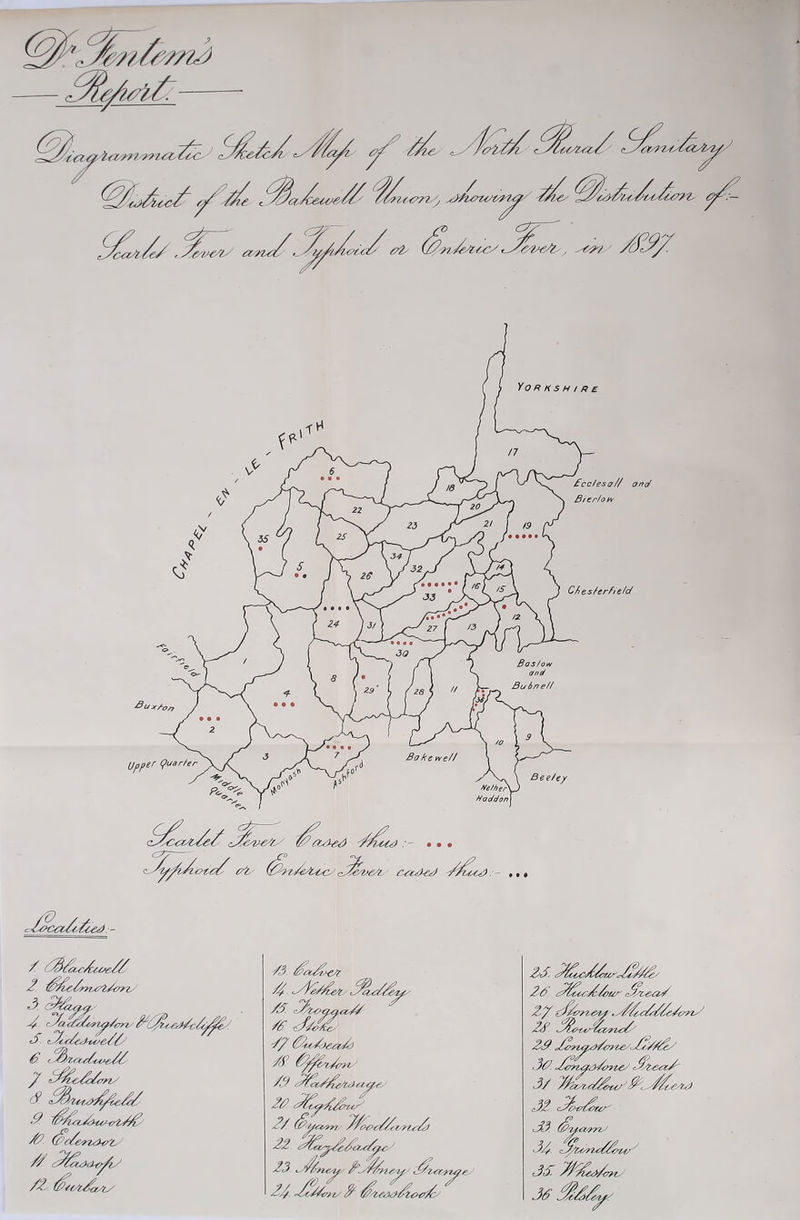 Dr Fentem's
Report.
Diagrammatic Sketch Map of the North Rural Sanitary
District of the Bakewell Union, showing the Distribution of:-
Scarlet Fever and Typhoid or Enteric Fever, in 1897.
YORKSHIRE
CHAPEL - EN - LE - FRITH
17
6
18
Ecclesall and
Bierlow
22
20
23
21
19
35
25
34
5
26
32
14
33
16
15
Chesterfield
12
24
31
27
13
30
Fairfield
1
8
29
28
11
Baslow
and
Bubnell
4
36
Buxton
2
10
9
3
7
Bakewell
Upper Quarter
Middle
Quarter
Monyash
Ashford
Beeley
Nether
Haddon
Scarlet Fever Cases thus:- •••
Typhoid or Enteric Fever cases thus:- •••
Localities:-
1 Blackwell
2 Chelmorton
3 Flagg
4 Taddington & Priestcliffe
5 Tideswell
6 Bradwell
7 Sheldon
8 Brushfield
9 Chatsworth
10 Edensor
11 Hassop
12 Curbar
13 Calver
14 Nether Padley
15 Froggatt
16 Stoke
17 Outseats
18 Offerton
19 Hathersage
20 Highlow
21 Eyam Woodlands
22 Hazlebadge
23 Abney & Abney Grange
24 Litton & Cressbrook
25 Hucklow Little
26 Hucklow Great
27 Stoney Middleton
28 Rowland
29 Longstone Little
30 Longstone Great
31 Wardlow & Miers
32 Foolow
33 Eyam
34 Grindlow
35 Wheston
36 Pilsley